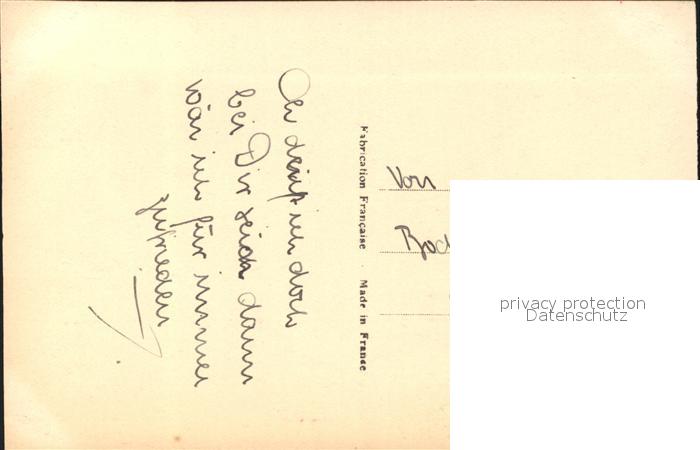 Oh dürft ich doch
bei Dir sein dann
wär ich für immer
zufrieden
Fabrication Française · Made in France
Von
privacy protection
Datenschutz